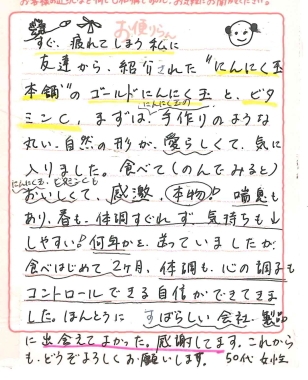 お便りらん
すぐ、疲れてしまう私に
友達から、紹介された"にんにく玉
本舗"のゴールドにんにく玉と、ビタ
ミンC、まずは、にんにく玉の手作りのような
丸い、自然の形が、愛らしくて、気に
入りました。食べて(のんでみると)
にんにく玉、ビタミンCも
おいしくて、感激。本物!! 喘息も
あり、春も、体調すぐれず、気持ちも↓
しやすい。何年かと、迷っていましたが、
食べはじめて2ヶ月、体調も、心の調子も
コントロールできる自信ができてきま
した。ほんとうに すばらしい会社、製品
に出会えてよかった。感謝してます。これから
も、どうぞよろしくお願いします。 50代女性